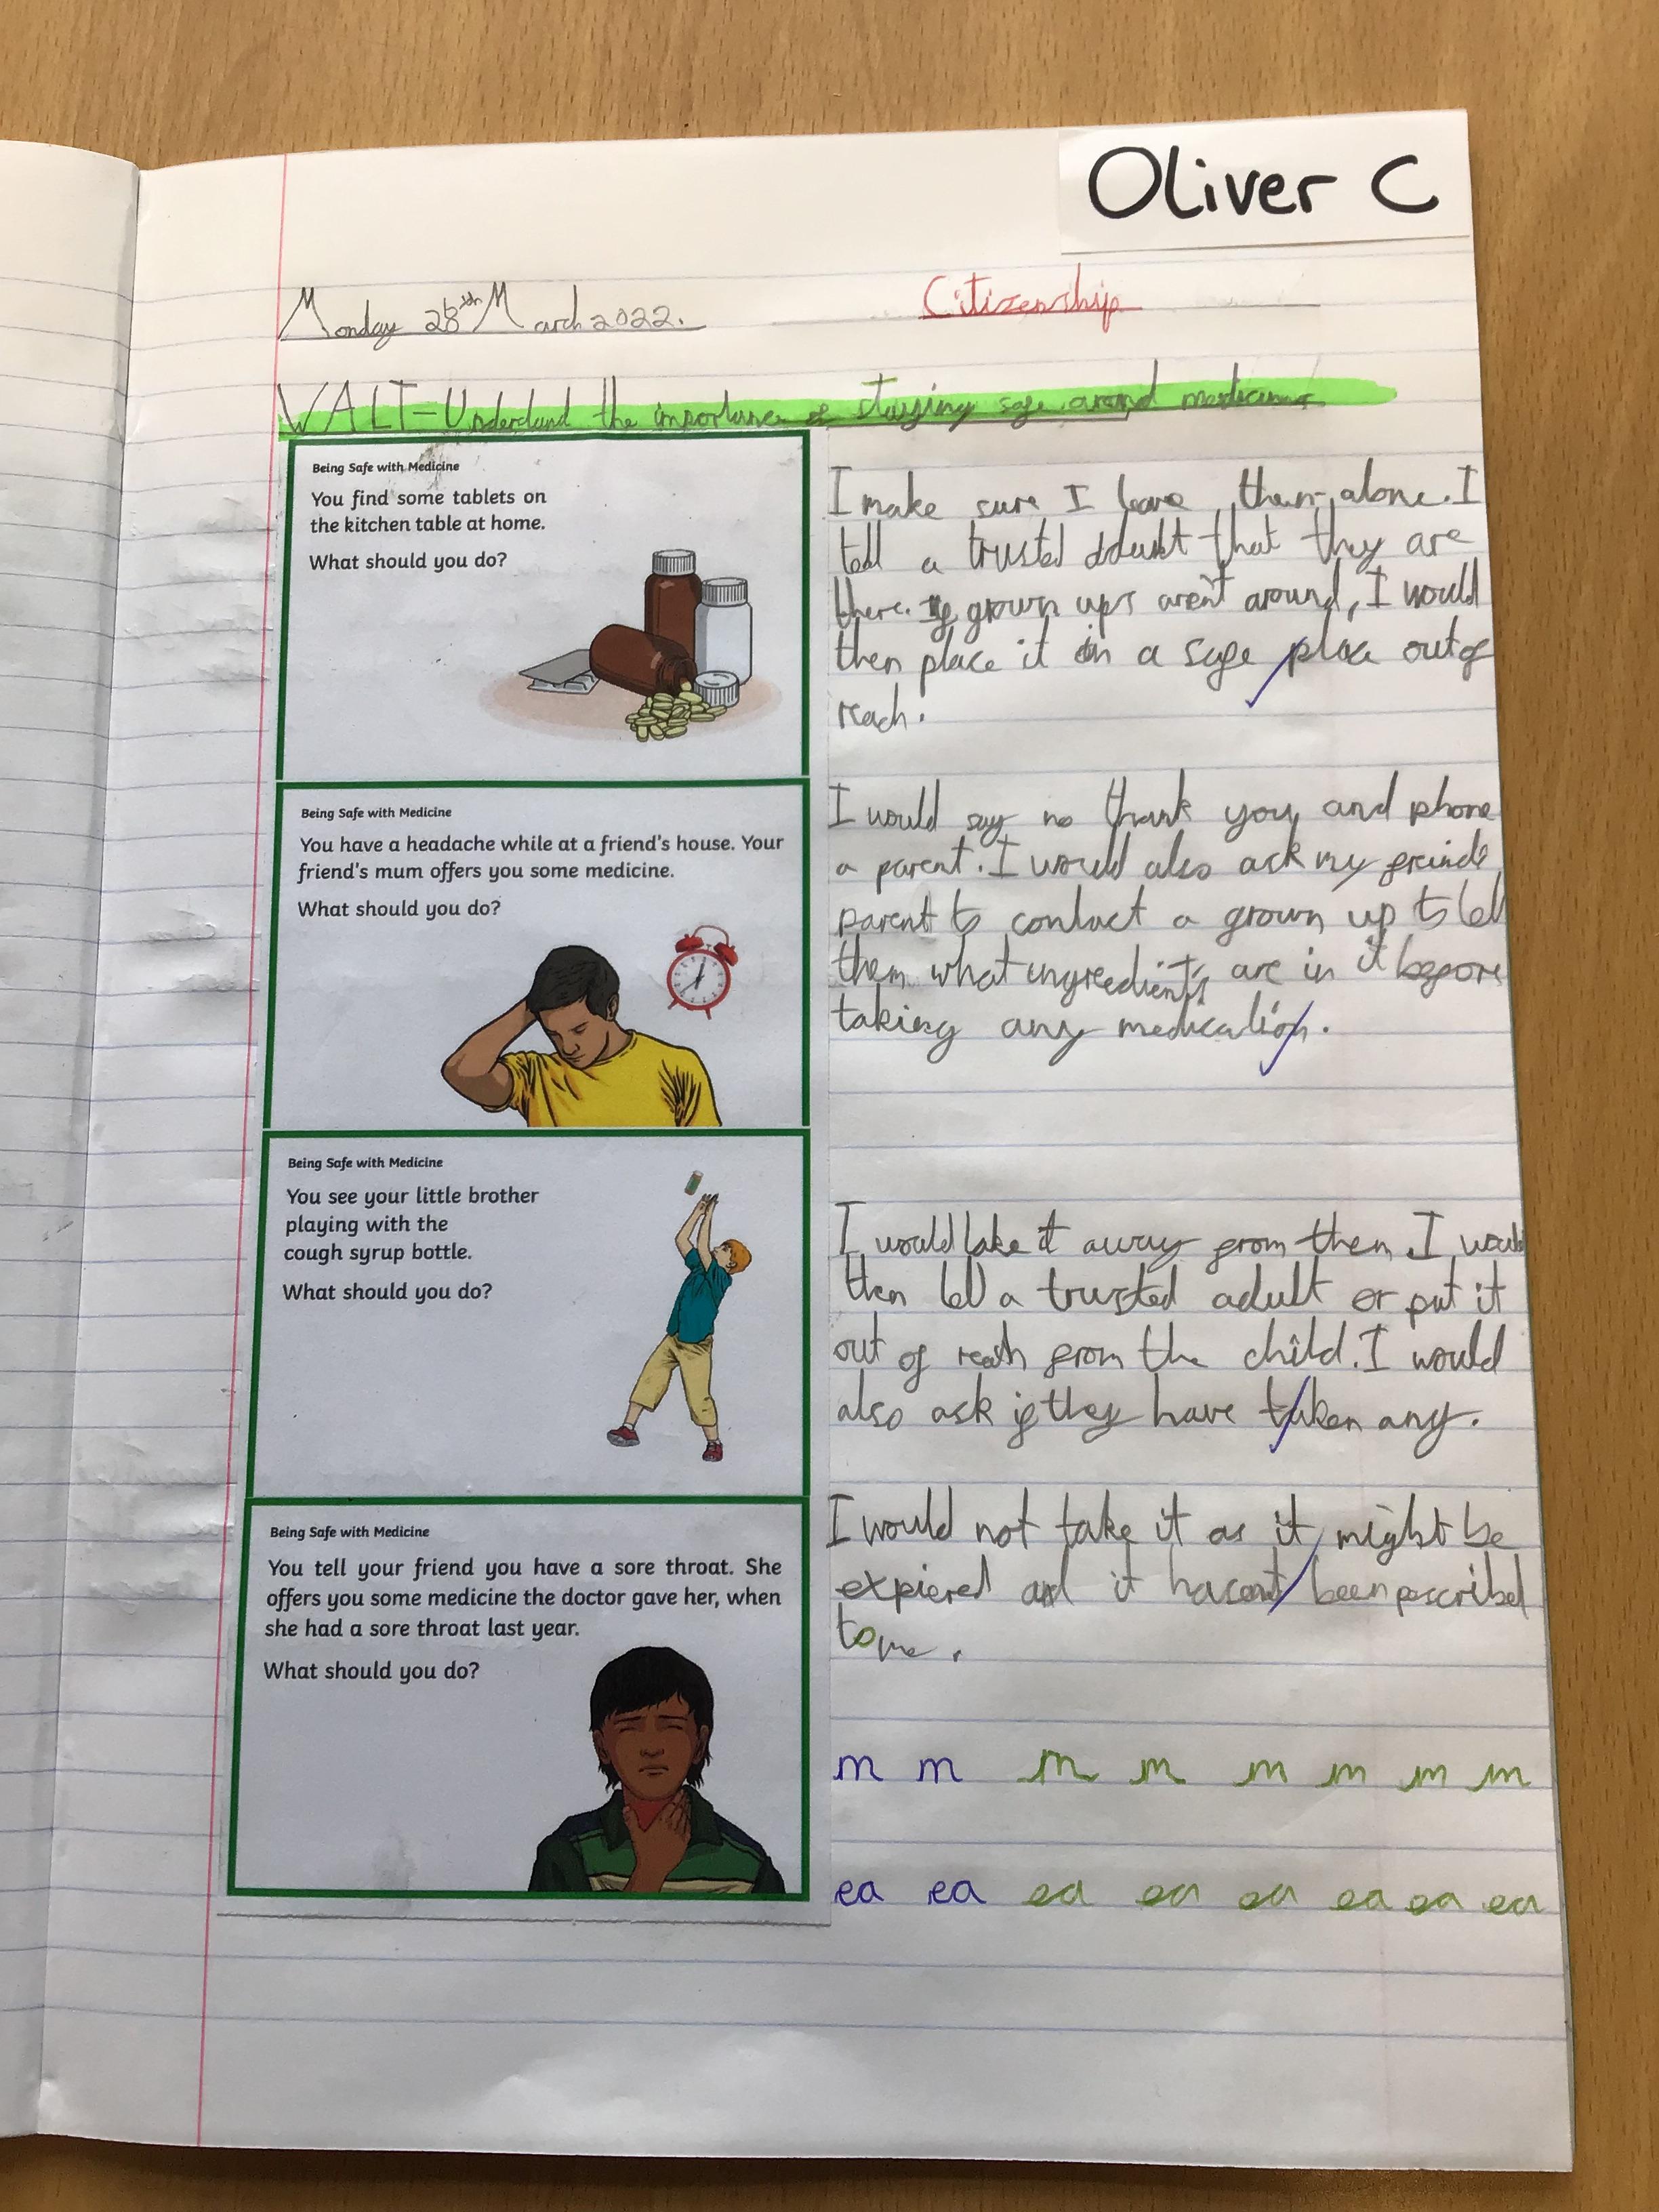 Oliver C
Monday 28th March 2022.
Citizenship
WALT-Understand the importance of staying safe around medicines
Being Safe with Medicine
You find some tablets on
the kitchen table at home.
What should you do?
I make sure I leave them alone. I
tell a trusted adult that they are
there. If grown ups aren't around, I would
then place it in a safe place out of
reach.
Being Safe with Medicine
You have a headache while at a friend's house. Your
friend's mum offers you some medicine.
What should you do?
I would say no thank you and phone
a parent. I would also ask my freinds
parent to contact a grown up to tell
them what ingreedients are in it before
taking any medication.
Being Safe with Medicine
You see your little brother
playing with the
cough syrup bottle.
What should you do?
I would take it away from them. I would
then tell a trusted adult or put it
out of reach from the child. I would
also ask if they have taken any.
Being Safe with Medicine
You tell your friend you have a sore throat. She
offers you some medicine the doctor gave her, when
she had a sore throat last year.
What should you do?
I would not take it as it might be
expiered and it hasent been pescribed
to me.
m m m m m m m m
ea ea ea ea ea ea ea ea